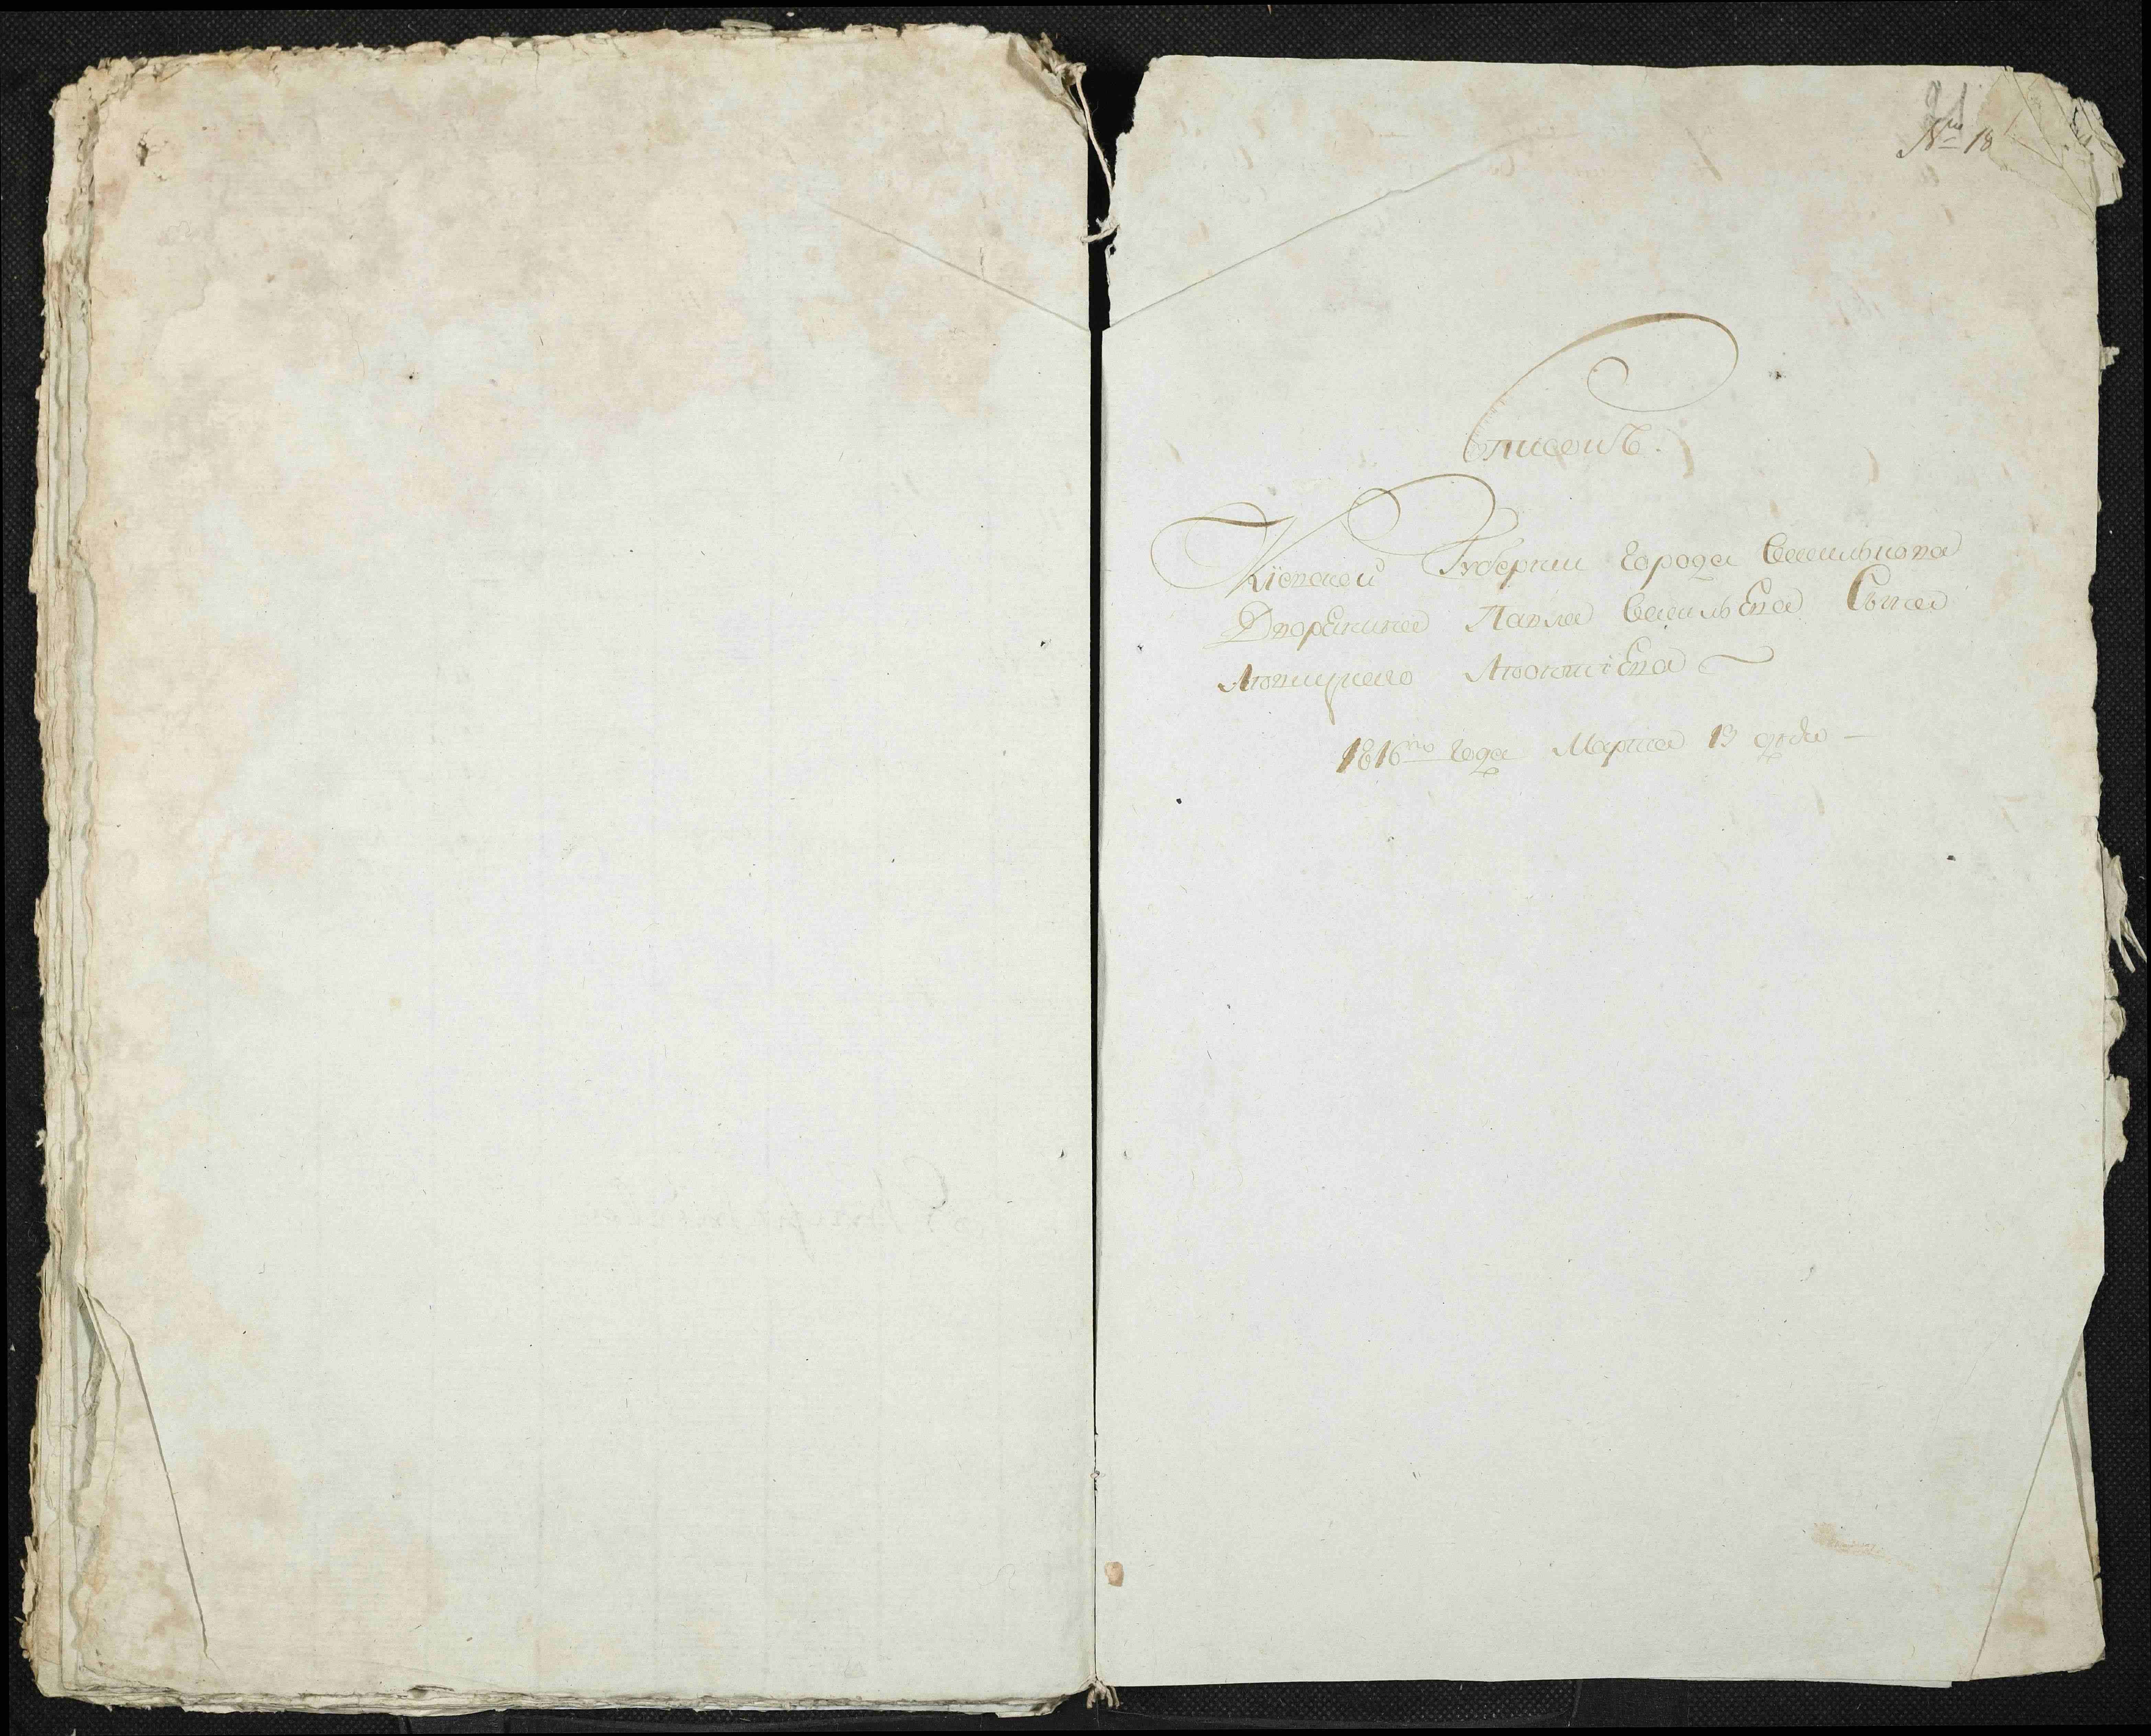 21
№ 18
Списокъ.
Кіевской Губерніи города Василькова
Дворянина Павла Васильева Сына
1816го года Марта 13 дня —